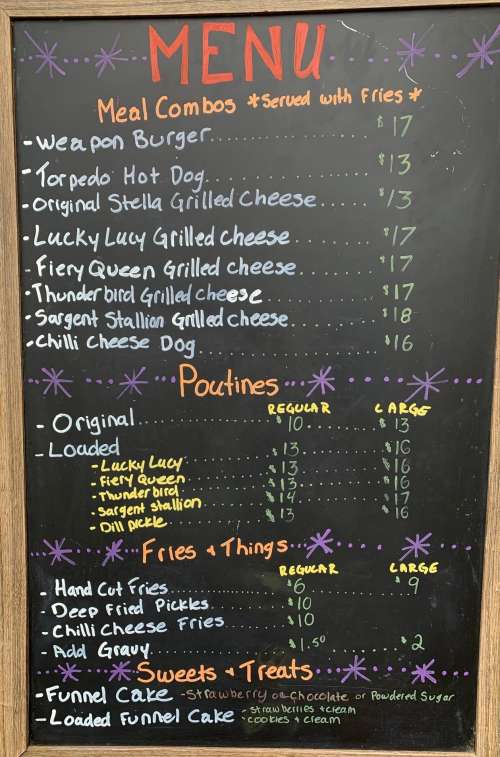 MENU
Meal Combos *Served with Fries*
- Weapon Burger.......... $17
- Torpedo Hot Dog.......... $13
- Original Stella Grilled Cheese..... $13
- Lucky Lucy Grilled Cheese........ $17
- Fiery Queen Grilled Cheese........ $17
- Thunderbird Grilled cheese.......... $17
- Sargent Stallion Grilled Cheese.......... $18
- Chilli Cheese Dog.......... $16
Poutines
REGULAR LARGE
- Original.......... $10 .......... $13
- Loaded
- Lucky Lucy .......... $13 .......... $16
- Fiery Queen .......... $13 .......... $16
- Thunderbird .......... $13 .......... $16
- Sargent Stallion .......... $14 .......... $17
- Dill pickle .......... $13 .......... $16
Fries & Things
REGULAR LARGE
- Hand Cut Fries.......... $6 .......... $9
- Deep Fried Pickles.......... $10
- Chilli Cheese Fries.......... $10
- Add Gravy.......... $1.50 .......... $2
Sweets & Treats
- Funnel Cake - Strawberry or Chocolate or Powdered Sugar
- Loaded Funnel Cake - strawberries & cream
- cookies & cream